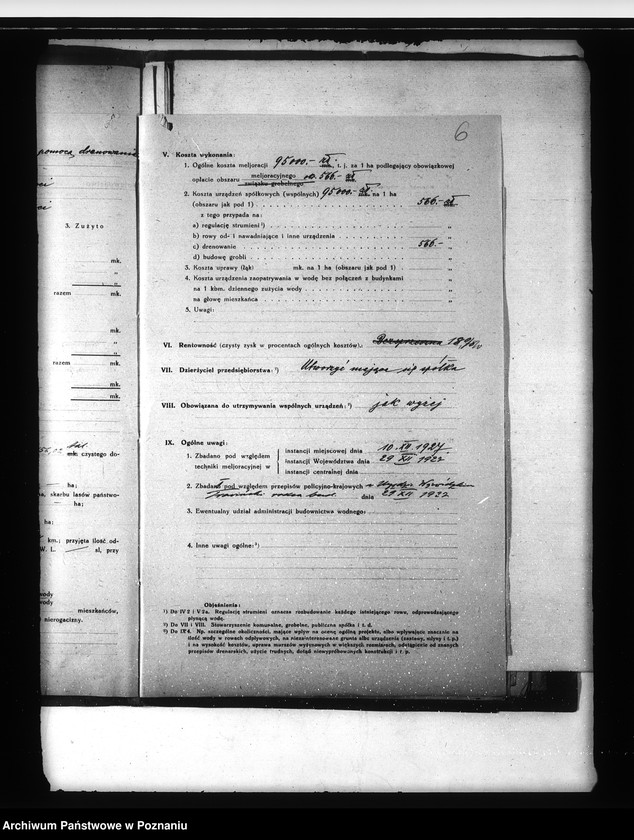 pomocą drenowania
3. Zużyto
mk.
"
"
razem mk.
mk.
"
razem mk.
mk.
mk.
czystego do-
ha;
a, skarbu lasów państwo-
ha;
ha;
km.; przyjęta ilość od-
W. L. sl, przy
wody
wody
mieszkańców,
nierogacizny.
6
V. Koszta wykonania:
1. Ogólne koszta meljoracji 95000.- zł. t. j. za 1 ha podlegający obowiązkowej
opłacie obszaru meljoracyjnego 566.- zł
związku grebelnego
2. Koszta urządzeń spółkowych (wspólnych) 95000.- zł. na 1 ha
(obszaru jak pod 1) 566.- zł
z tego przypada na:
a) regulację strumieni ¹) "
b) rowy od- i nawadniające i inne urządzenia "
c) drenowanie 566.- "
d) budowę grobli "
3. Koszta uprawy (łąk) mk. na 1 ha (obszaru jak pod 1) "
4. Koszta urządzenia zaopatrywania w wodę bez połączeń z budynkami
na 1 kbm. dziennego zużycia wody "
na głowę mieszkańca "
5. Uwagi:
VI. Rentowność (czysty zysk w procentach ogólnych kosztów): 18%
VII. Dzierżyciel przedsiębiorstwa: ²) Utworzyć mająca się spółka
VIII. Obowiązana do utrzymywania wspólnych urządzeń: ²) jak wyżej
IX. Ogólne uwagi:
1. Zbadano pod względem
techniki meljoracyjnej w
instancji miejscowej dnia 10. XII 1927
instancji Województwa dnia 29 XII 1927
instancji centralnej dnia
2. Zbadano pod względem przepisów policyjno-krajowych
dnia 29 XII 1927
3. Ewentualny udział administracji budownictwa wodnego:
4. Inne uwagi ogólne: ³)
Objaśnienia:
¹) Do IV 2 i V 2a. Regulację strumieni oznacza rozbudowanie każdego istniejącego rowu, odprowadzającego
płynącą wodę.
²) Do VII i VIII. Stowarzyszenie komunalne, grobelne, publiczna spółka i t. d.
³) Do IX 4. Np. szczególne okoliczności, mające wpływ na ocenę ogólną projektu, albo wpływające znacznie na
ilość wody w rowach odpływowych, na niezainteresowane grunta albo urządzenia (zastawy, młyny i t. p.)
i na wysokość kosztów, uprawa murszów wyżynowych w większych rozmiarach, odstąpienie od znanych
przepisów drenarskich, użycie trudnych, dotąd niewypróbowanych konstrukcji i t. p.
Archiwum Państwowe w Poznaniu